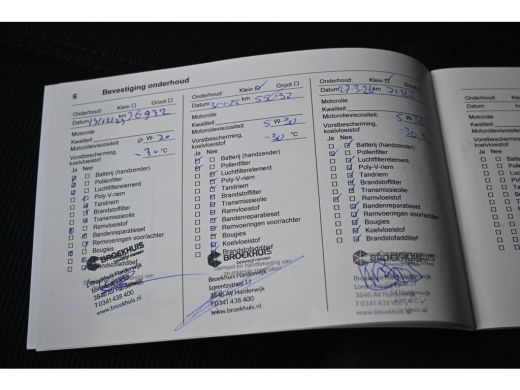 6 Bevestiging onderhoud
Onderhoud: Klein Groot
Datum km 26932
Motorolie
Kwaliteit:
Motorolieviscositeit: 0 W-20
Vorstbescherming, koelvloeistof -30 °C
Ja Nee
Batterij (handzender)
Pollenfilter
Luchtfilterelement
Poly-V-riem
Tandriem
Brandstoffilter
Transmissieolie
Remvloeistof
Bandenreparatieset
Remvoeringen voor/achter
Bougies
Koelvloeistof
Brandstofadditief
BROEKHUIS
Broekhuis Harderwijk
3846 AV Harderwijk
T 0341 438 400
www.broekhuis.nl
Onderhoud: Klein Groot
Datum 31-1-25 km 55032
Motorolie
Kwaliteit:
Motorolieviscositeit: 5 W-30
Vorstbescherming, koelvloeistof -30 °C
Ja Nee
Batterij (handzender)
Pollenfilter
Luchtfilterelement
Poly-V-riem
Tandriem
Brandstoffilter
Transmissieolie
Remvloeistof
Bandenreparatieset
Remvoeringen voor/achter
Bougies
Koelvloeistof
Brandstofadditief
BROEKHUIS
Broekhuis Harderwijk
Lorentzstraat 17
3846 AV Harderwijk
T 0341 438 400
www.broekhuis.nl
Onderhoud: Klein Groot
Datum 27-3-26 km
Motorolie
Kwaliteit:
Motorolieviscositeit: 5 W-30
Vorstbescherming, koelvloeistof -30 °C
Ja Nee
Batterij (handzender)
Pollenfilter
Luchtfilterelement
Poly-V-riem
Tandriem
Brandstoffilter
Transmissieolie
Remvloeistof
Bandenreparatieset
Remvoeringen voor/achter
Bougies
Koelvloeistof
Brandstofadditief
BROEKHUIS
Broekhuis Harderwijk
3846 AV Harderwijk
T 0341 438 400
www.broekhuis.nl